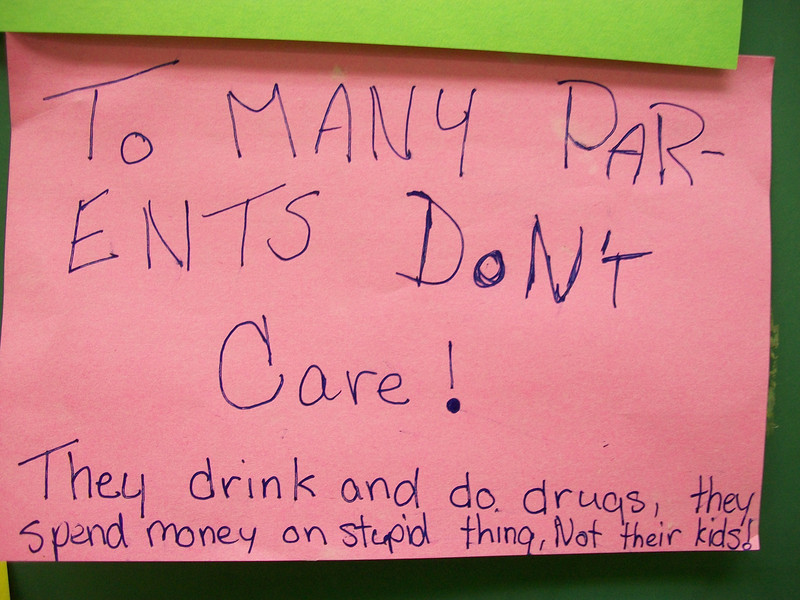 To MANY PAR-
ENTS DoN't
Care!
They drink and do. drugs, they
spend money on stupid thing, Not their kids!